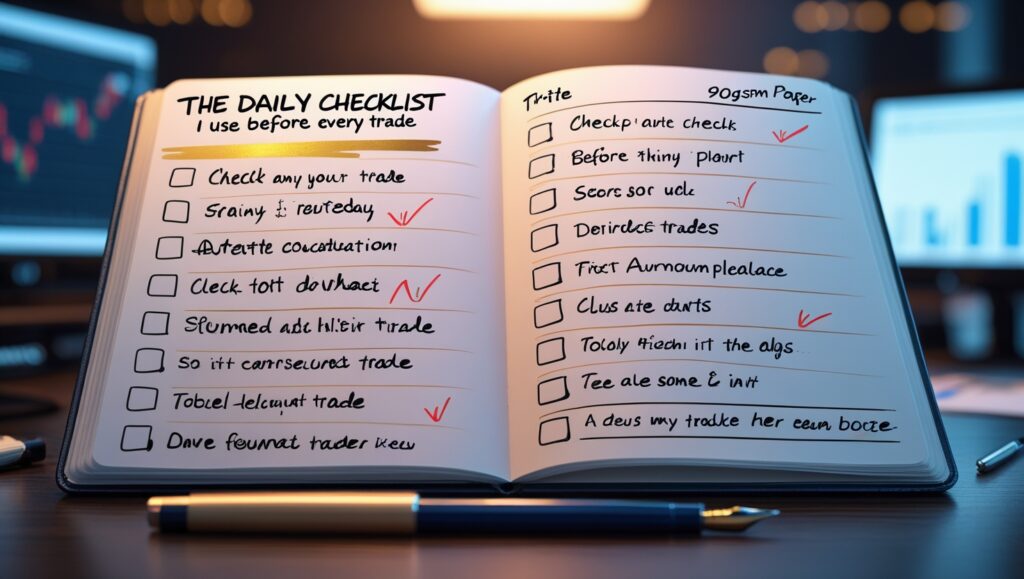 THE DAILY CHECKLIST
I use before every trade
Check any your trade
Srainy reuteday
Autertte coucatuation
Cleck tott dovhaet
Sfurmed adc hlitir trade
So itt carrsecured trade
Tobcel trade
Dave feumat trader
90gsm Paper
Checkp arte check
Before thiny plourt
Scors sor uck
trades
Tixct Aurnoum plealace
Cluss ate darts
Tolaly it the algs
Tee ale some & init
A deus my tradke her eean bocte